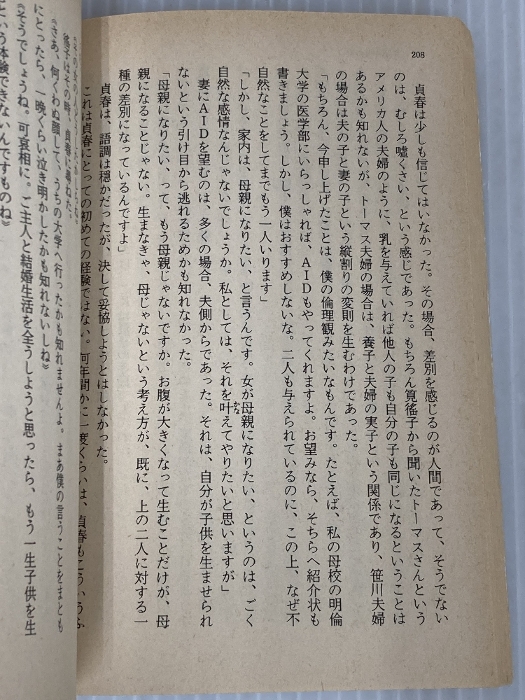 208
貞春は少しも信じてはいなかった。その場合、差別を感じるのが人間であって、そうでない
のは、むしろ嘘くさい、という感じであった。もちろん筧徭子から聞いたトーマスさんという
アメリカ人の夫婦のように、乳を与えていれば他人の子も自分の子も同じになるということは
あるかも知れないが、トーマス夫婦の場合は、養子と夫婦の実子という関係であり、笹川夫婦
の場合は夫の子と妻の子という縦割りの変則を生むわけであった。
「もちろん、今申し上げたことは、僕の倫理観みたいなもんです。たとえば、私の母校の明倫
大学の医学部にいらっしゃれば、AIDもやってくれますよ。お望みなら、そちらへ紹介状も
書きましょう。しかし、僕はおすすめしないな。二人も与えられているのに、この上、なぜ不
自然なことをしてまでもう一人いります」
「しかし、家内は、母親になりたい、と言うんです。女が母親になりたい、というのは、ごく
自然な感情なんじゃないでしょうか。私としては、それを叶えてやりたいと思いますが」
妻にAIDを望むのは、多くの場合、夫側からであった。それは、自分が子供を生ませられ
ないという引け目から逃れるためかも知れなかった。
「母親になりたい、って、もう母親じゃないですか。お腹が大きくなって生むことだけが、母
親になることじゃない。生まなきゃ、母じゃないという考え方が、既に、上の二人に対する一
種の差別になっているんですよ」
貞春は、語調は穏かだったが、決して妥協しようとはしなかった。
これは貞春にとっての初めての経験ではない。何年間かに一度くらいは、貞春もこういうふ
徭子はその時、貞春に尋ねた。
《さあ、何くわぬ顔して、うちの大学へ行ったかも知れませんよ。まあ僕の言うことをまとも
にとったら、一晩くらい泣き明かしたかも知れないしね》
《そうでしょうね。可哀相に。ご主人と結婚生活を全うしようと思ったら、もう一生子供を生
という体験できないんですものね》